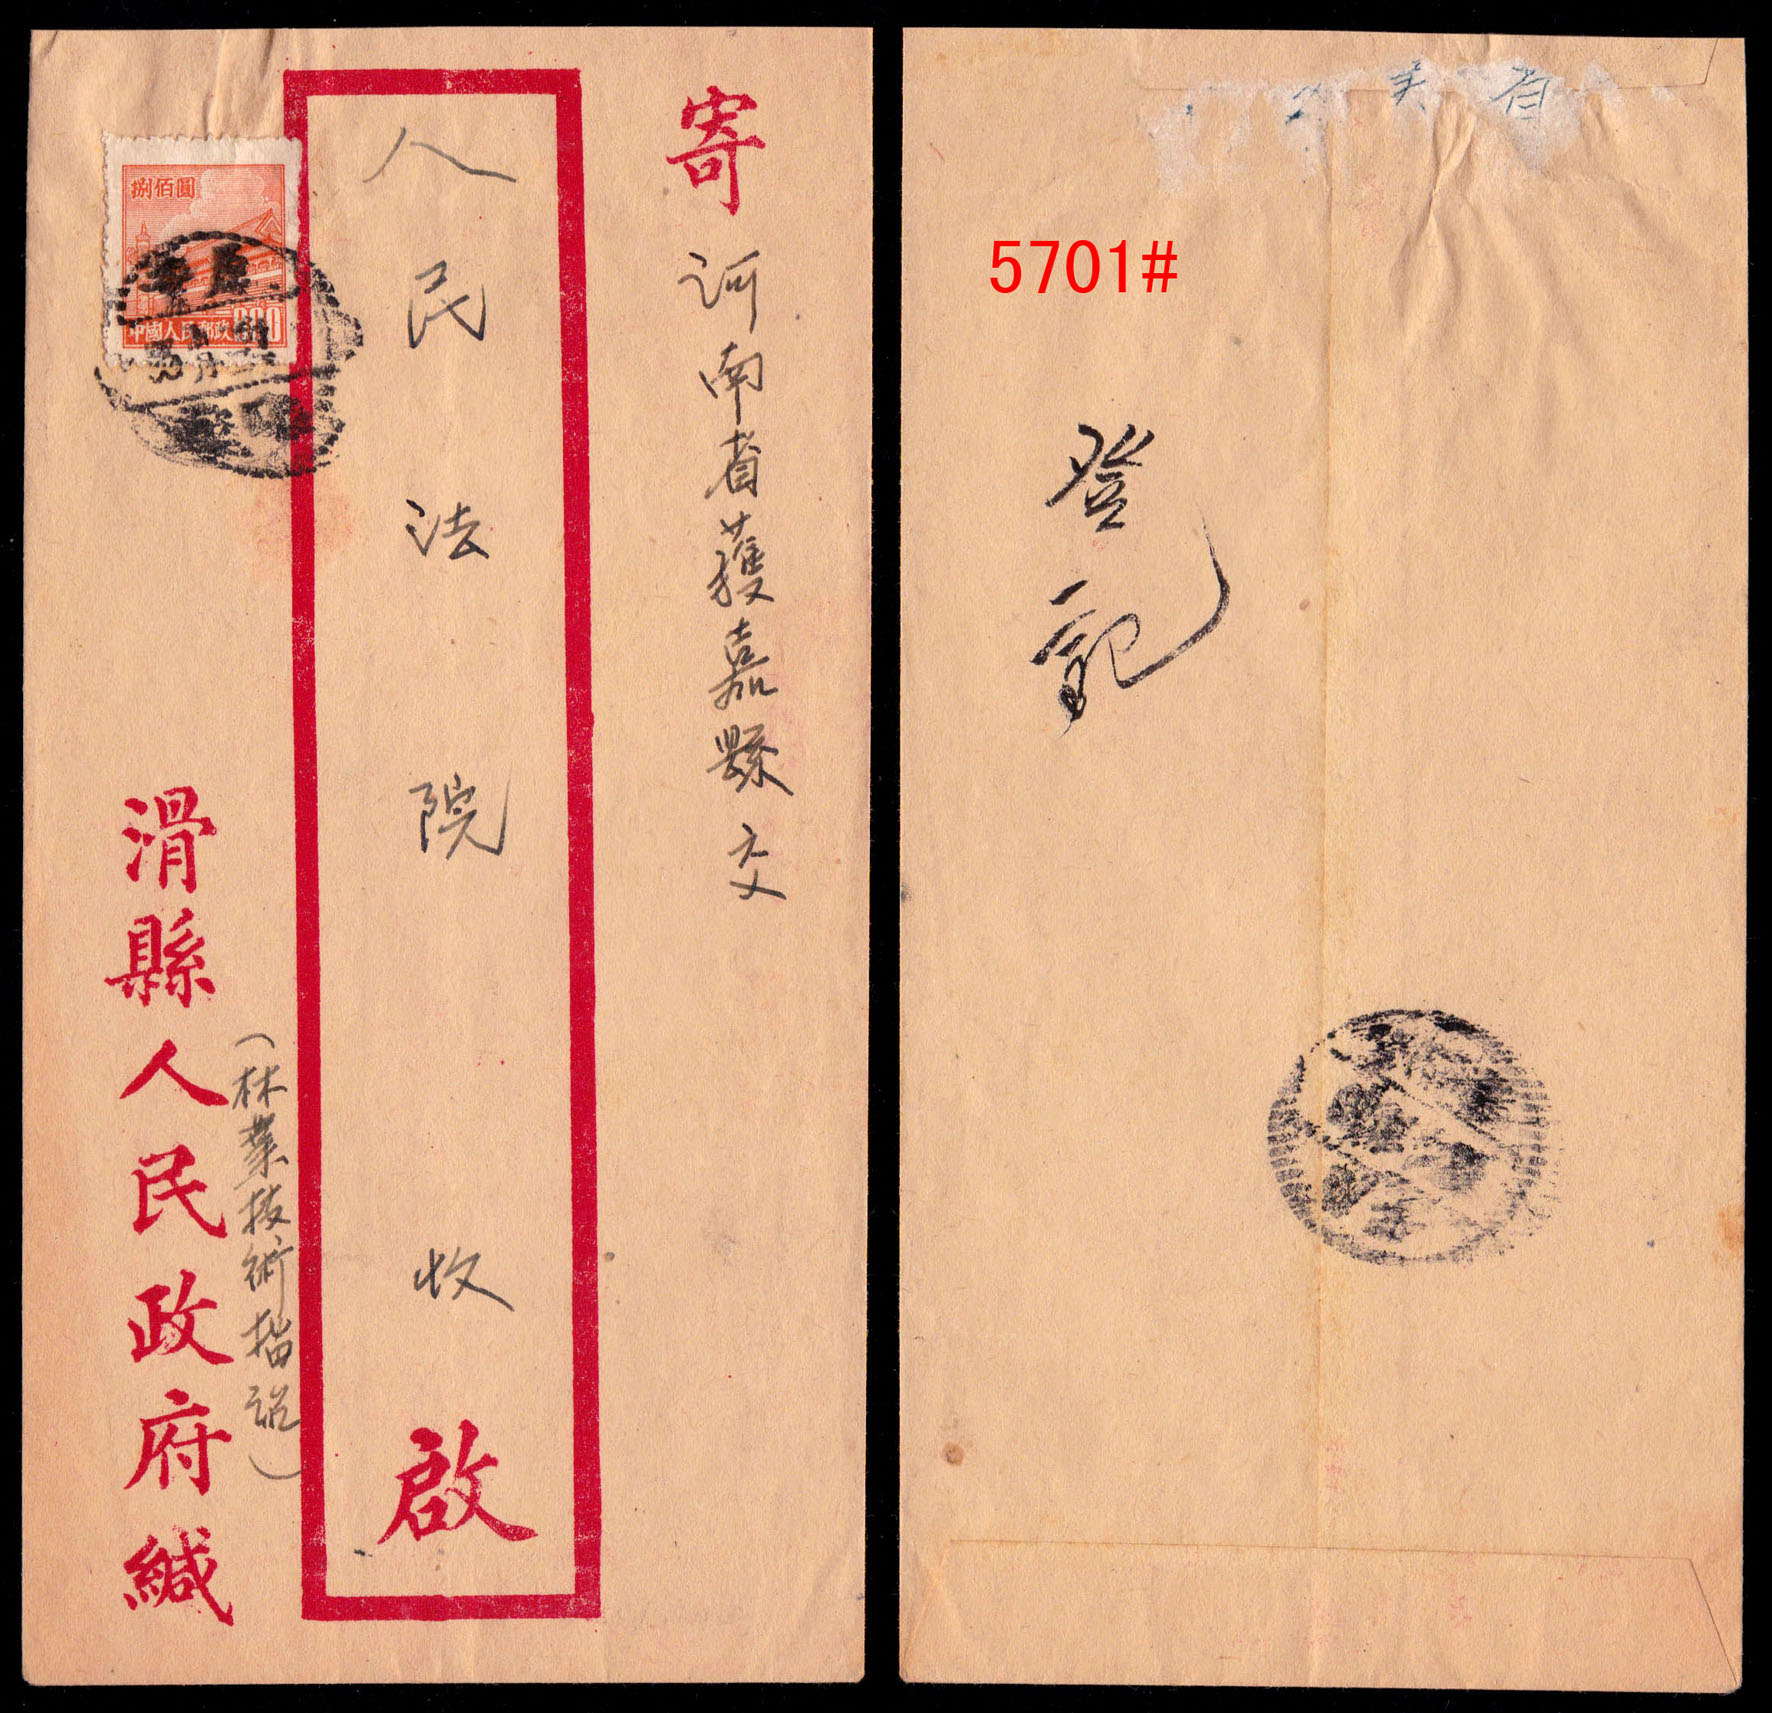 寄
河南省蒦嘉縣交
人民法院收
啟
滑縣人民政府緘
(林業技術指説)
捌佰圓
中國人民郵政800
5701#
登記